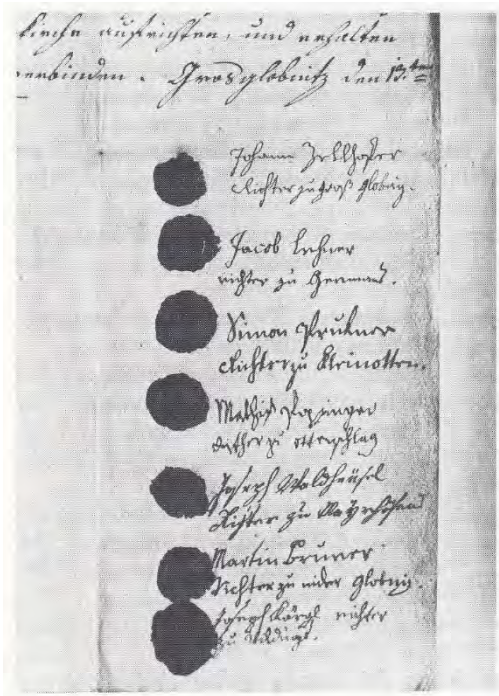 Kirche aufrichten, und erhalten
verbinden. Grosglobnitz den 13ten
Johann Zellhofer
Richter zu groß globniz.
Jacob Lehner
richter zu Germans.
Simon Prukner
Richter zu Kleinotten.
Mathias
Richter zu ottenschlag
Joseph Waldhäusel
Richter zu Mayrhöfen
Martin Bruner
Richter zu nider Globniz.
Joseph richter
zu